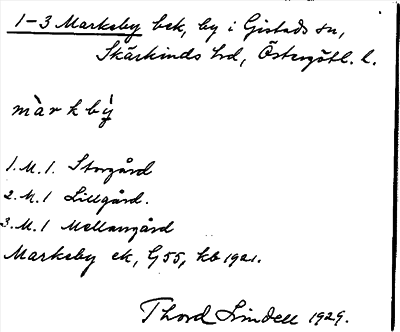 1-3 Markeby bek, by i Gistads sn,
Skärkinds hd, Östergötl. l.
màrkbỳ
1. M. 1. Storgård
2. M. 1 Lillgård.
3. M. 1 Mellangård
Markeby ek, G55, kb 1921.
Thord Lindell 1929.